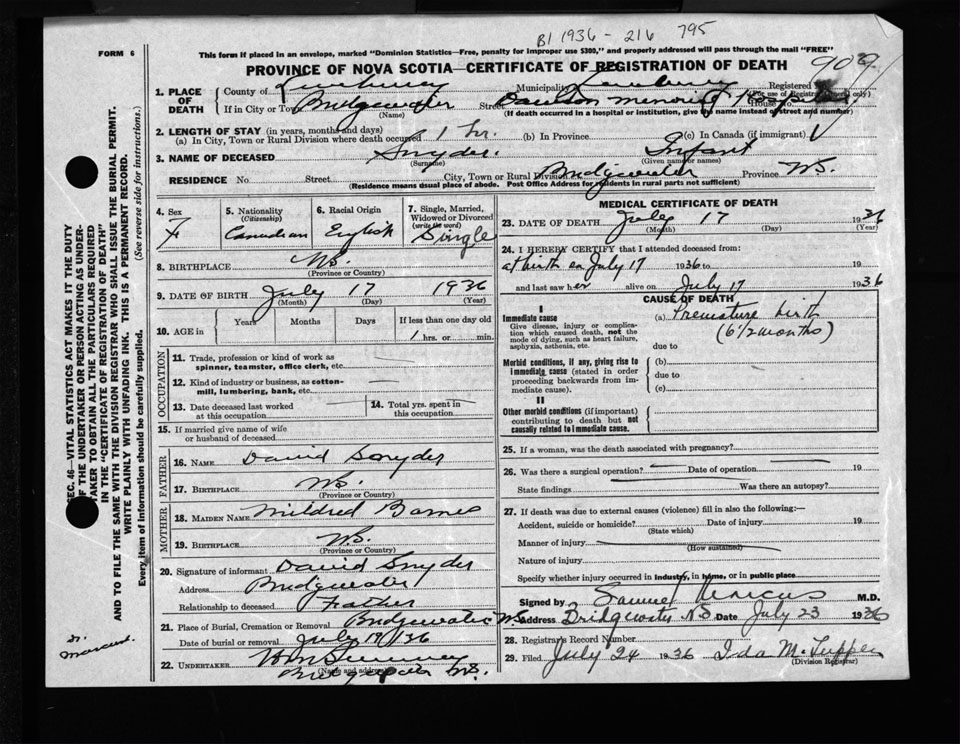 B1 1936 - 216 795
FORM 6
This form if placed in an envelope, marked "Dominion Statistics—Free, penalty for improper use $300," and properly addressed will pass through the mail "FREE"
PROVINCE OF NOVA SCOTIA—CERTIFICATE OF REGISTRATION OF DEATH
909
1. PLACE OF DEATH County of Lunenburg Municipality Lunenburg Registered No.
(For use of Registrar General only)
If in City or Town Bridgewater Street Dawson Memorial Hospital House No.
(Name) (If death occurred in a hospital or institution, give name instead of street and number)
2. LENGTH OF STAY (in years, months and days)
(a) In City, Town or Rural Division where death occurred 1 hr. (b) In Province (c) In Canada (if immigrant)
3. NAME OF DECEASED Snyder. Infant
(Surname) (Given name or names)
RESIDENCE No Street City, Town or Rural Division Bridgewater Province N.S.
(Residence means usual place of abode. Post Office Address for residents in rural parts not sufficient)
4. Sex F
5. Nationality (Citizenship) Canadian
6. Racial Origin English
7. Single, Married, Widowed or Divorced (write the word) Single
8. BIRTHPLACE N.S.
(Province or Country)
9. DATE OF BIRTH July 17 1936
(Month) (Day) (Year)
10. AGE in Years Months Days If less than one day old
1 hrs. or min.
OCCUPATION
11. Trade, profession or kind of work as spinner, teamster, office clerk, etc.
12. Kind of industry or business, as cotton-mill, lumbering, bank, etc.
13. Date deceased last worked at this occupation
14. Total yrs. spent in this occupation.
15. If married give name of wife or husband of deceased
FATHER
16. NAME David Snyder
17. BIRTHPLACE N.S.
(Province or Country)
MOTHER
18. MAIDEN NAME Mildred Barnes
19. BIRTHPLACE N.S.
(Province or Country)
20. Signature of informant David Snyder
Address Bridgewater
Relationship to deceased Father
21. Place of Burial, Cremation or Removal Bridgewater N.S.
Date of burial or removal July 19/36
22. UNDERTAKER
(Name and address)
Bridgewater N.S.
MEDICAL CERTIFICATE OF DEATH
23. DATE OF DEATH July 17 1936
(Month) (Day) (Year)
24. I HEREBY CERTIFY that I attended deceased from:
at birth on July 17 1936 to 19
and last saw her alive on July 17 1936
CAUSE OF DEATH
I
Immediate cause
Give disease, injury or complication which caused death, not the mode of dying, such as heart failure, asphyxia, asthenia, etc.
(a) Premature birth
(6 1/2 months)
due to
Morbid conditions, if any, giving rise to immediate cause (stated in order proceeding backwards from immediate cause).
(b)
due to
(c)
II
Other morbid conditions (if important) contributing to death but not causally related to immediate cause.
25. If a woman, was the death associated with pregnancy?
26. Was there a surgical operation? Date of operation 19
State findings Was there an autopsy?
27. If death was due to external causes (violence) fill in also the following:—
Accident, suicide or homicide? Date of injury 19
(State which)
Manner of injury
(How sustained)
Nature of injury
Specify whether injury occurred in industry, in home, or in public place
Signed by Samuel Marcus M.D.
Address Bridgewater N.S Date July 23 1936
28. Registrar's Record Number
29. Filed July 24 1936 Ida M. Tupper
(Division Registrar)
SEC. 46—VITAL STATISTICS ACT MAKES IT THE DUTY
OF THE UNDERTAKER OR PERSON ACTING AS UNDER-
TAKER TO OBTAIN ALL THE PARTICULARS REQUIRED
IN THE "CERTIFICATE OF REGISTRATION OF DEATH"
AND TO FILE THE SAME WITH THE DIVISION REGISTRAR WHO SHALL ISSUE THE BURIAL PERMIT.
WRITE PLAINLY WITH UNFADING INK. THIS IS A PERMANENT RECORD.
Every item of information should be carefully supplied. (See reverse side for instructions.)
Dr. Marcus.